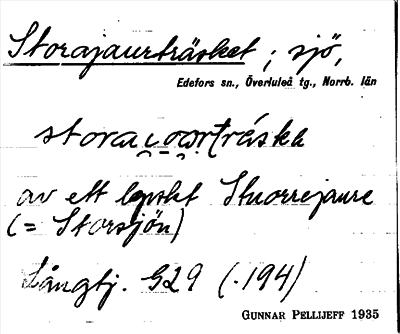 Storajaurträsket ; sjö,
Edefors sn., Överluleå tg., Norrb. län
av ett lapskt Stuorrejaure
(= Storsjön)
Långtj. G29 (.194)
GUNNAR PELLIJEFF 1935